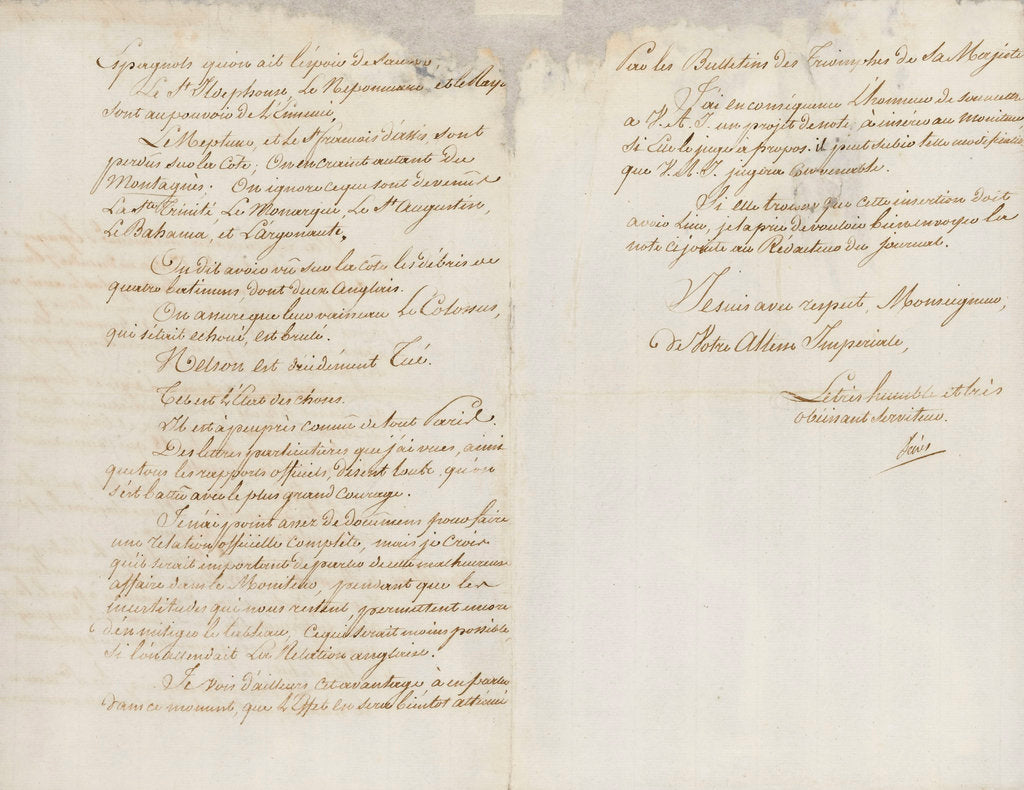 Espagnols qu'on ait l'espoir de sauver.
Le St. Ildephonse, Le Nepomucene et le Bayc
sont au pouvoir de l'Ennemi.
Le Neptuno, et le St. francois d'assis, sont
perdus sur la cote; On en craint autant du
Montagnès. On ignore ce que sont devenus
La Ste. Trinité Le Monarque, Le St. Augustin,
Le Bahama, et L'argonaute.
On dit avoir vu sur la côte les débris de
quatre batimens, dont deux Anglais.
On assure que leur vaisseau Le Colossus,
qui s'était echoué, est brulé.
Nelson est décidément Tué.
Tel est l'Etat des choses.
Il est àpeuprès connu de tout Paris.
Des lettres particulières que j'ai vues, ainsi
que tous les rapports officiels, disent toutes, qu'on
s'est battu avec le plus grand courage.
Je n'ai point assez de documens pour faire
une relation officielle complète, mais je crois
qu'il serait important de parler de cette malheureuse
affaire dans le Moniteur, pendant que les
incertitudes qui nous restent, permettent encore
d'en mitiger le tableau, Ce qui serait moins possible,
si l'on attendait La Relation anglaise.
Je vois d'ailleurs cet avantage à en parler
dans ce moment, que l'Effet en sera bientôt atténué
Par les Bulletins des Triomphes de Sa Majesté
J'ai en conséquence L'honneur de soumettre
a V. A. I. un projet de note à insérer au moniteur
si Elle le juge à propos. il peut subir telle modification
que V. A. I. jugera Convenable.
Si elle trouve que cette insertion doit
avoir Lieu, je la prie de vouloir bien envoyer la
note cijointe au Rédacteur du Journal.
Je suis avec respect, Monseigneur,
de Votre Altesse Impériale,
Le très humble et très
obéissant Serviteur.